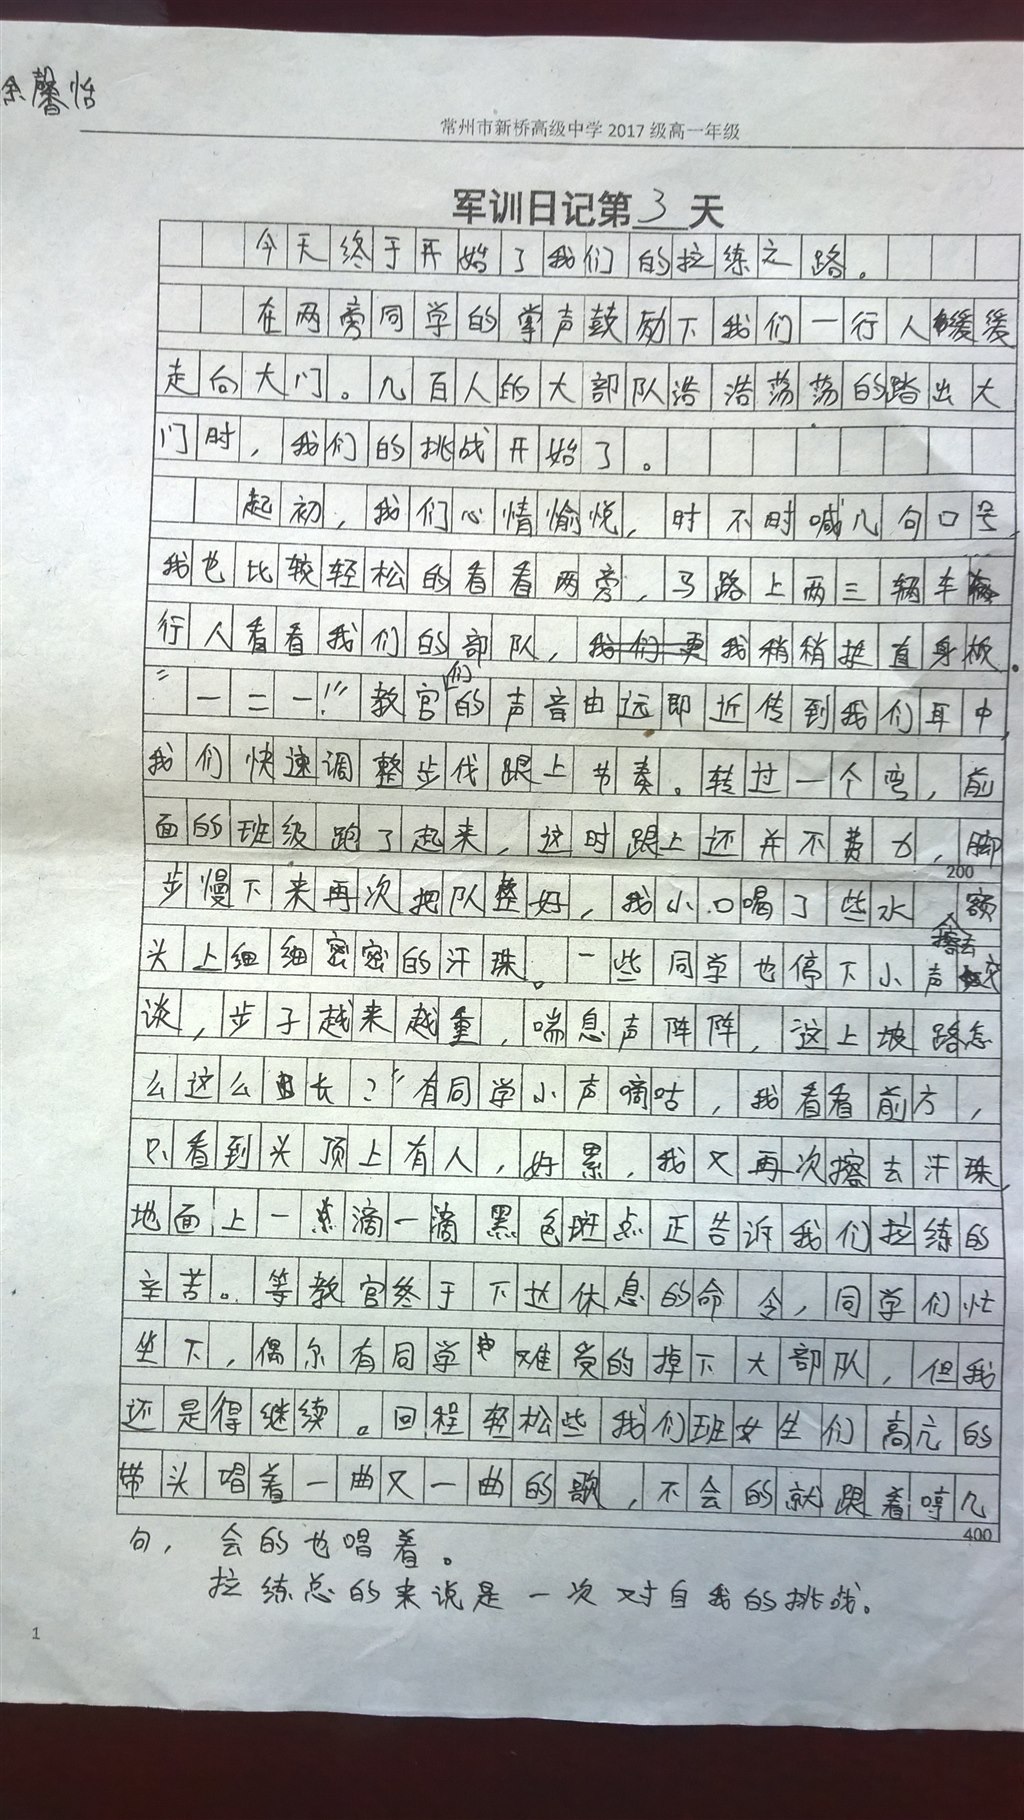 余馨怡
常州市新桥高级中学 2017 级高一年级
军训日记第 3 天
今天终于开始了我们的拉练之路。
在两旁同学的掌声鼓励下我们一行人缓缓
走向大门。几百人的大部队浩浩荡荡的踏出大
门时，我们的挑战开始了。
起初，我们心情愉悦，时不时喊几句口号，
我也比较轻松的看看两旁，马路上两三辆车
行人看看我们的部队，我稍稍挺直身板。
“一二一！”教官们的声音由远即近传到我们耳中，
我们快速调整步伐跟上节奏。转过一个弯，前
面的班级跑了起来，这时跟上还并不费力，脚
200
步慢下来再次把队整好，我小口喝了些水擦去额
头上细细密密的汗珠。一些同学也停下小声交
谈，步子越来越重，喘息声阵阵，这上坡路怎
么这么长？”有同学小声嘀咕，我看看前方，
只看到头顶上有人，好累，我又再次擦去汗珠，
地面上一点滴一滴黑色斑点正告诉我们拉练的
辛苦。等教官终于下达休息的命令，同学们忙
坐下，偶尔有同学难受的掉下大部队，但我
还是得继续。回程轻松些我们班女生们高亢的
带头唱着一曲又一曲的歌，不会的就跟着哼几
400
句，会的也唱着。
拉练总的来说是一次对自我的挑战。
1